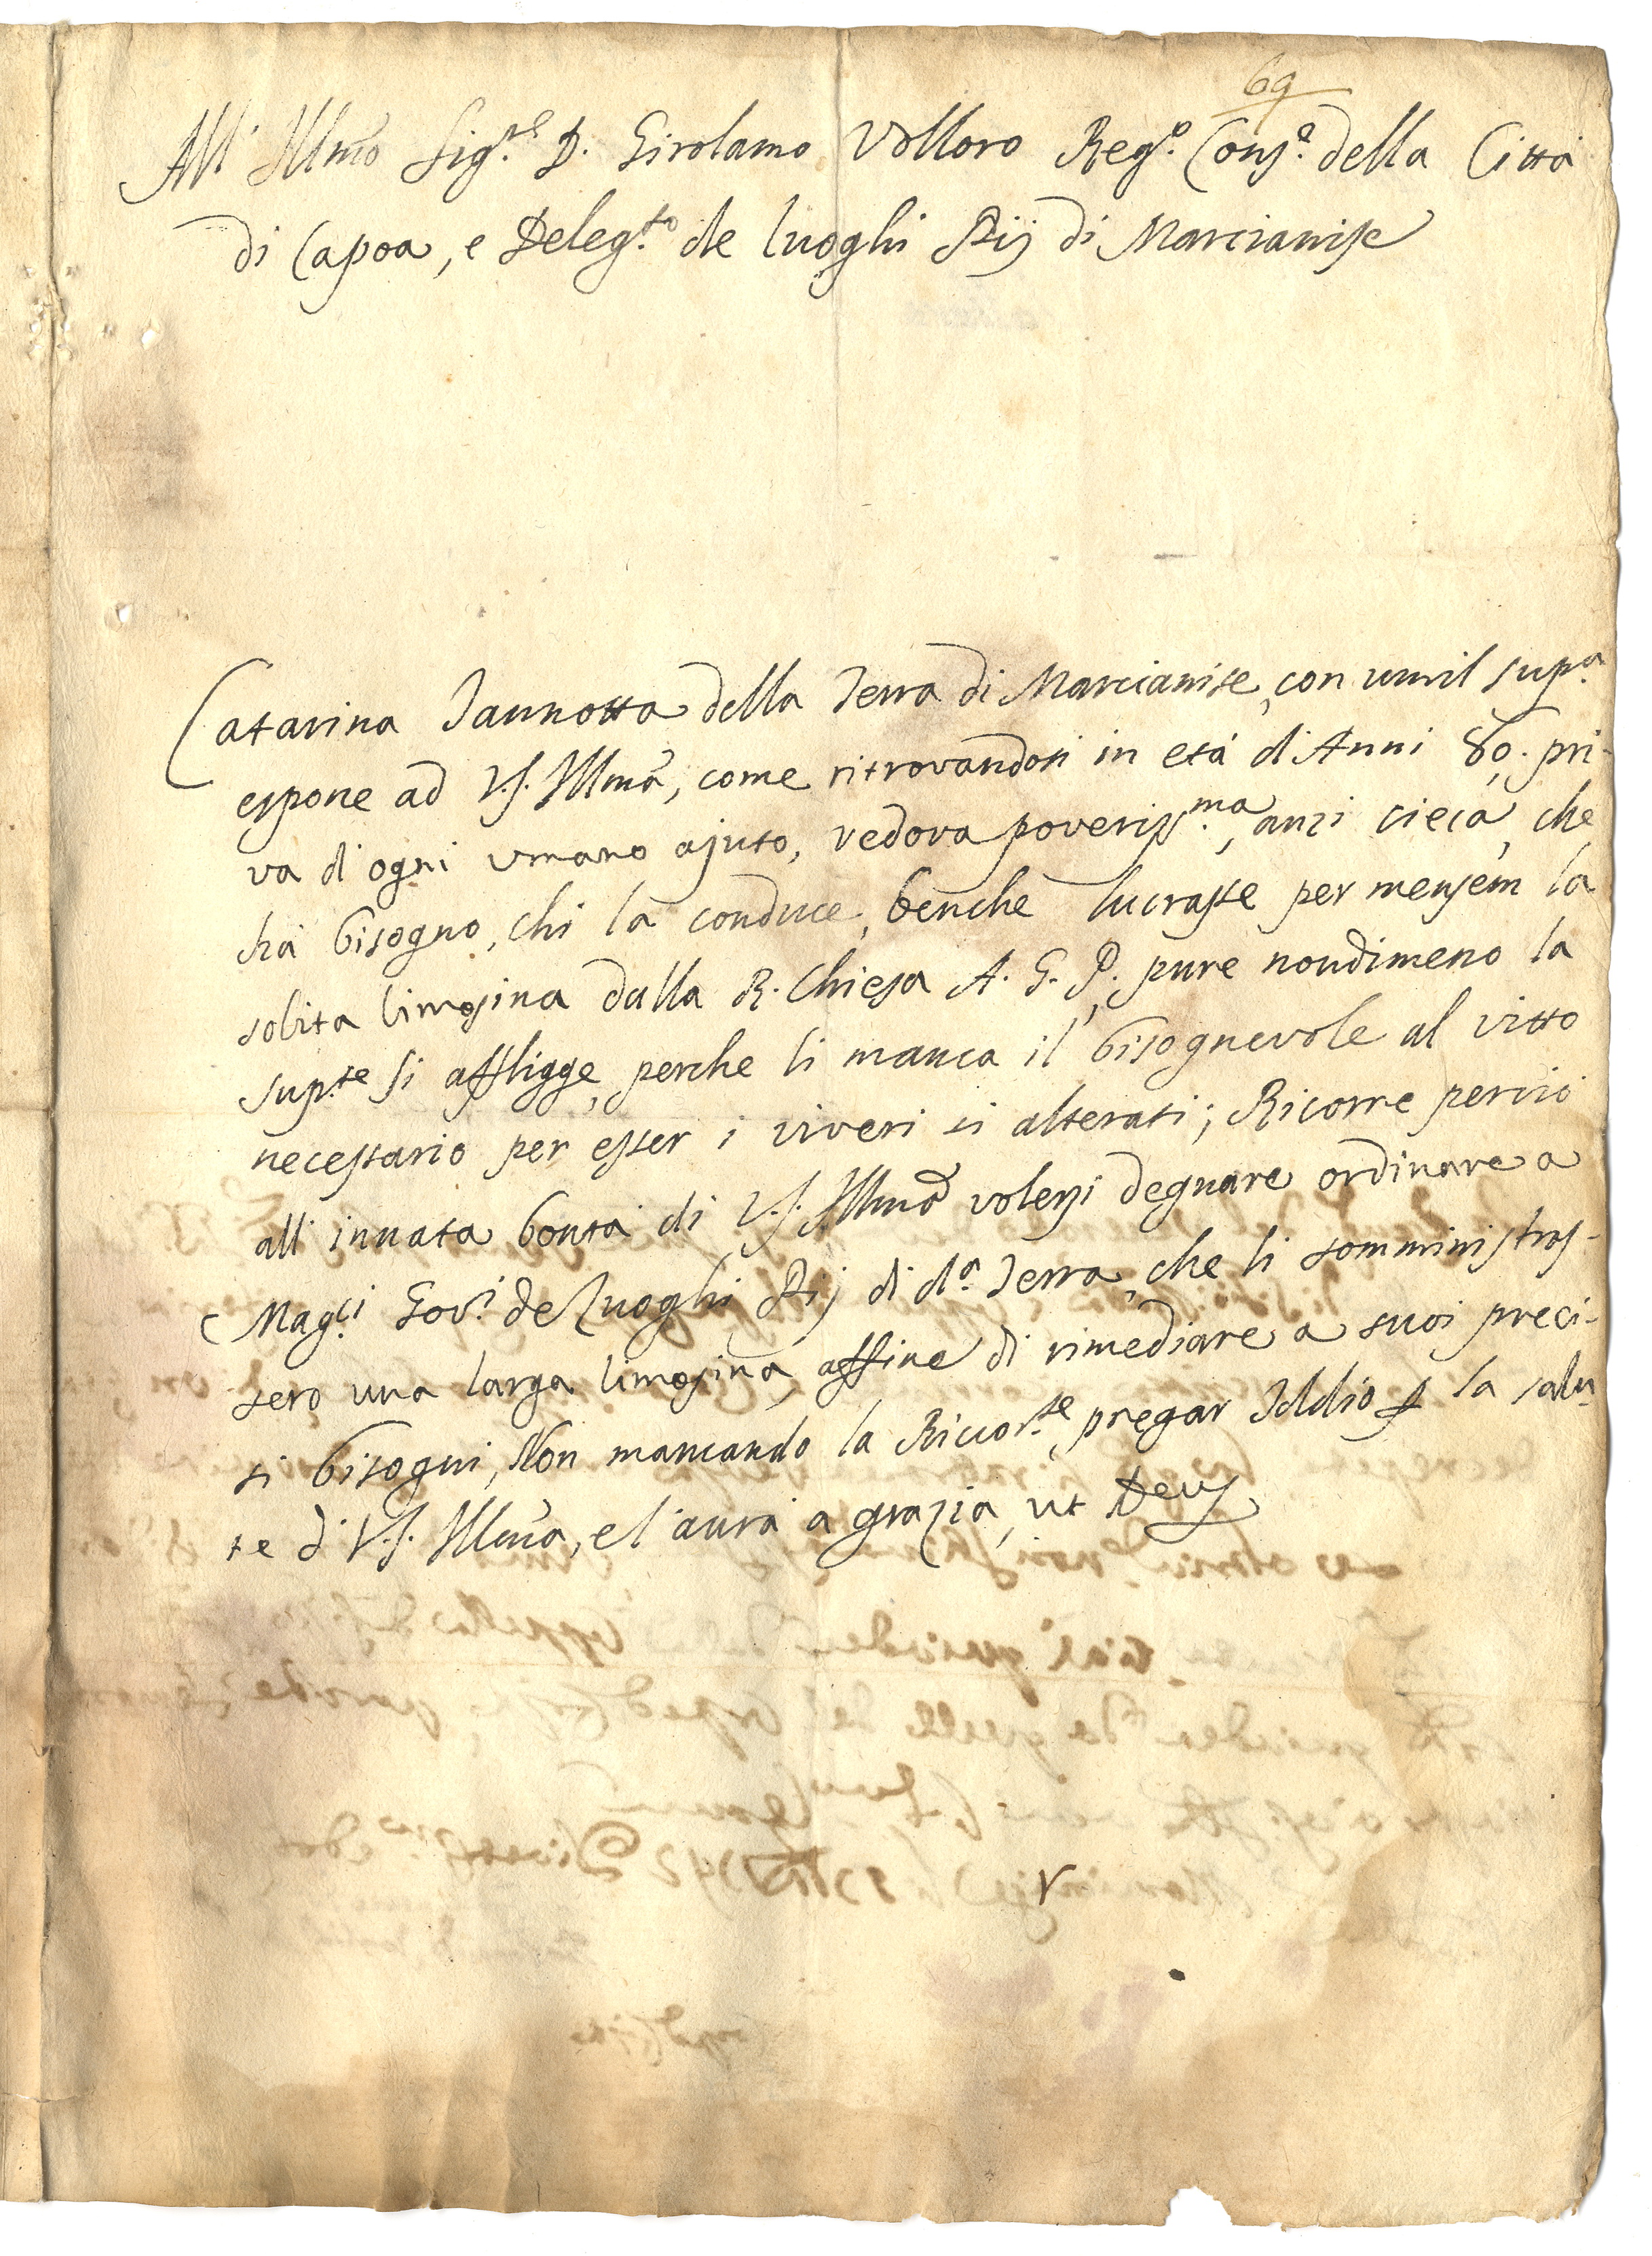 69
All' Illmo Sig.re D. Girolamo Volloro Reg.o Cons.e della Città
di Capoa, e Deleg.to de luoghi Pij di Marcianise
Catarina Iannotta della Terra di Marcianise, con umil sup.a
espone ad V.S. Illma, come ritrovandosi in età di Anni 80. pri-
va di ogni umano ajuto, vedova poveriss.ma, anzi cieca, che
hà bisogno, chi la conduce, benche lucrasse per mensem la
solita limosina dalla R. Chiesa A. G. P. pure nondimeno la
sup.te si affligge, perche li manca il bisognevole al vitto
necessario per esser i viveri si alterati; Ricorre perciò
all' innata bontà di V.S. Illma volersi degnare ordinare a
Mag.ci Gov.i de Luoghi Pij di d.a Terra, che li somministras-
sero una larga limosina, affine di rimediare a suoi preci-
si bisogni, Non mancando la Ricor.te pregar Iddio per la salu-
te di V.S. Illma, e l'aurà a grazia, ut Deus